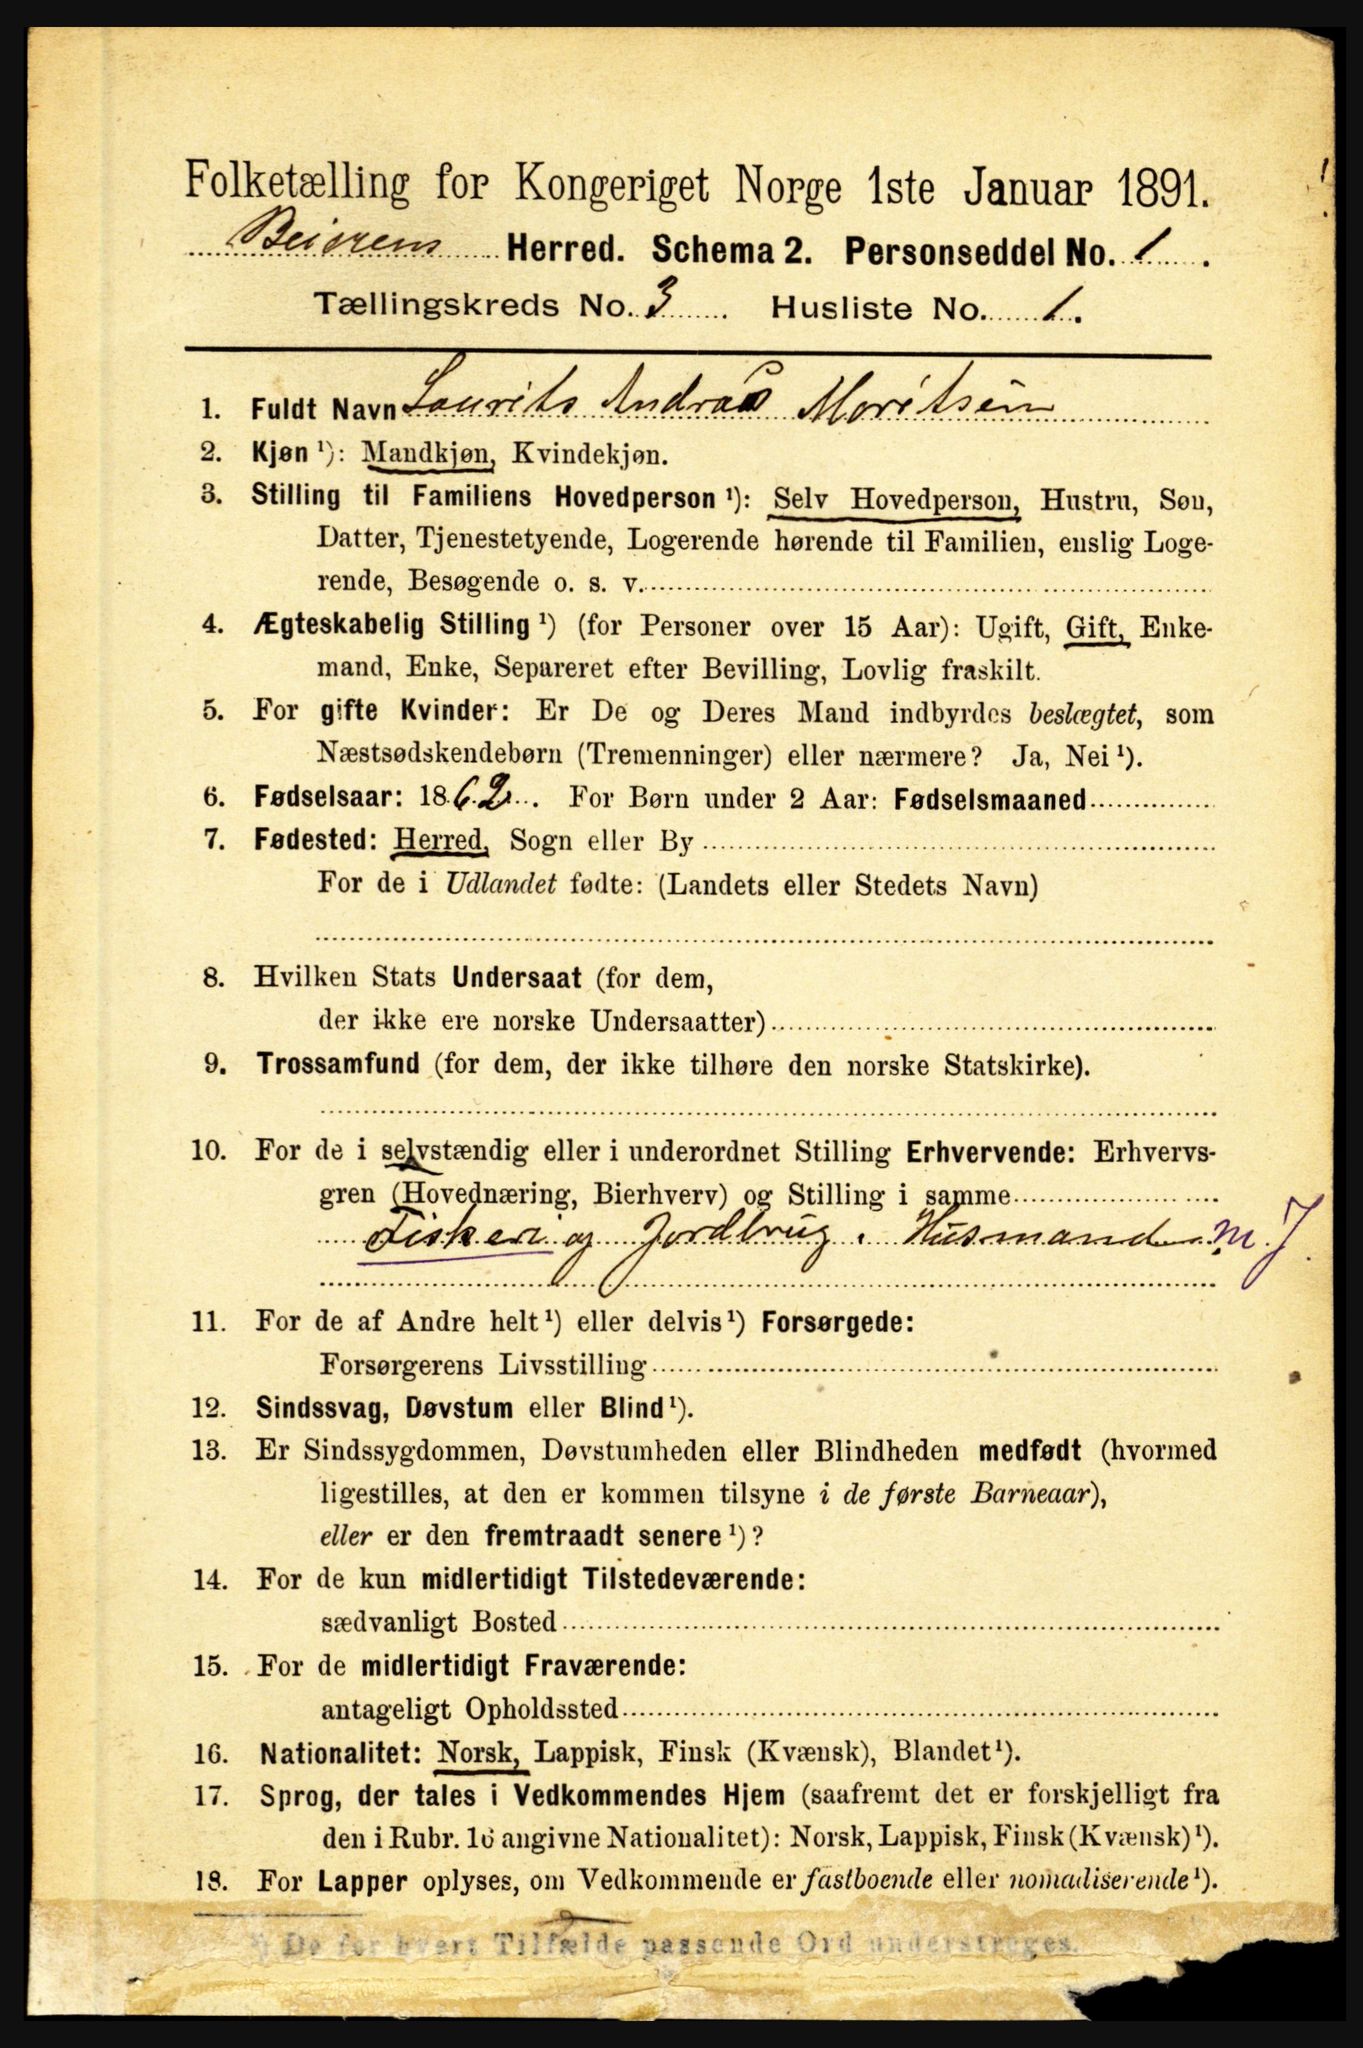 Folketælling for Kongeriget Norge 1ste Januar 1891.
Beierens Herred. Schema 2. Personseddel No. 1.
Tællingskreds No. 3 Husliste No. 1.
1. Fuldt Navn Laurits Andreas Moritsen
2. Kjøn ¹): Mandkjøn, Kvindekjøn.
3. Stilling til Familiens Hovedperson ¹): Selv Hovedperson, Hustru, Søn,
Datter, Tjenestetyende, Logerende hørende til Familien, enslig Loge-
rende, Besøgende o. s. v.
4. Ægteskabelig Stilling ¹) (for Personer over 15 Aar): Ugift, Gift, Enke-
mand, Enke, Separeret efter Bevilling, Lovlig fraskilt.
5. For gifte Kvinder: Er De og Deres Mand indbyrdes beslægtet, som
Næstsødskendebørn (Tremenninger) eller nærmere? Ja, Nei ¹).
6. Fødselsaar: 1862. For Børn under 2 Aar: Fødselsmaaned
7. Fødested: Herred, Sogn eller By
For de i Udlandet fødte: (Landets eller Stedets Navn)
8. Hvilken Stats Undersaat (for dem,
der ikke ere norske Undersaatter)
9. Trossamfund (for dem, der ikke tilhøre den norske Statskirke).
10. For de i selvstændig eller i underordnet Stilling Erhvervende: Erhvervs-
gren (Hovednæring, Bierhverv) og Stilling i samme
Fiskeri og Jordbrug. Husmand m. J.
11. For de af Andre helt ¹) eller delvis ¹) Forsørgede:
Forsørgerens Livsstilling
12. Sindssvag, Døvstum eller Blind ¹).
13. Er Sindssygdommen, Døvstumheden eller Blindheden medfødt (hvormed
ligestilles, at den er kommen tilsyne i de første Barneaar),
eller er den fremtraadt senere ¹)?
14. For de kun midlertidigt Tilstedeværende:
sædvanligt Bosted
15. For de midlertidigt Fraværende:
antageligt Opholdssted
16. Nationalitet: Norsk, Lappisk, Finsk (Kvænsk), Blandet ¹).
17. Sprog, der tales i Vedkommendes Hjem (saafremt det er forskjelligt fra
den i Rubr. 16 angivne Nationalitet): Norsk, Lappisk, Finsk (Kvænsk) ¹).
18. For Lapper oplyses, om Vedkommende er fastboende eller nomadiserende ¹).
¹) De for hvert Tilfælde passende Ord understreges.